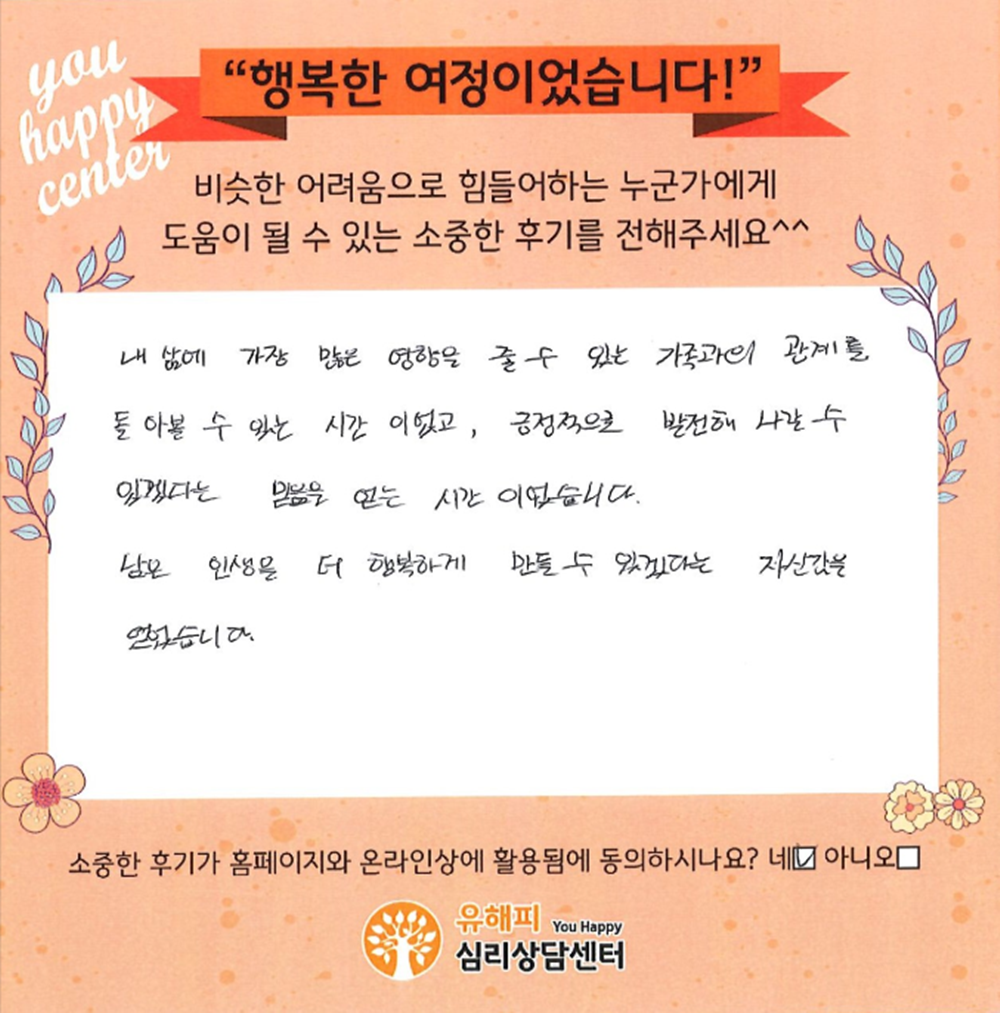 you
happy
center
“행복한 여정이었습니다!”
비슷한 어려움으로 힘들어하는 누군가에게
도움이 될 수 있는 소중한 후기를 전해주세요^^
내 삶에 가장 많은 영향을 줄 수 있는 가족과의 관계를
돌아볼 수 있는 시간이었고, 긍정적으로 발전해 나갈 수
있겠다는 믿음을 얻는 시간이었습니다.
남은 인생을 더 행복하게 만들 수 있겠다는 자신감을
얻었습니다.
소중한 후기가 홈페이지와 온라인상에 활용됨에 동의하시나요? 네☑ 아니오☐
유해피 You Happy
심리상담센터